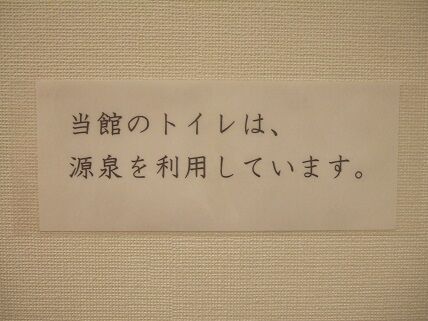 当館のトイレは、
源泉を利用しています。